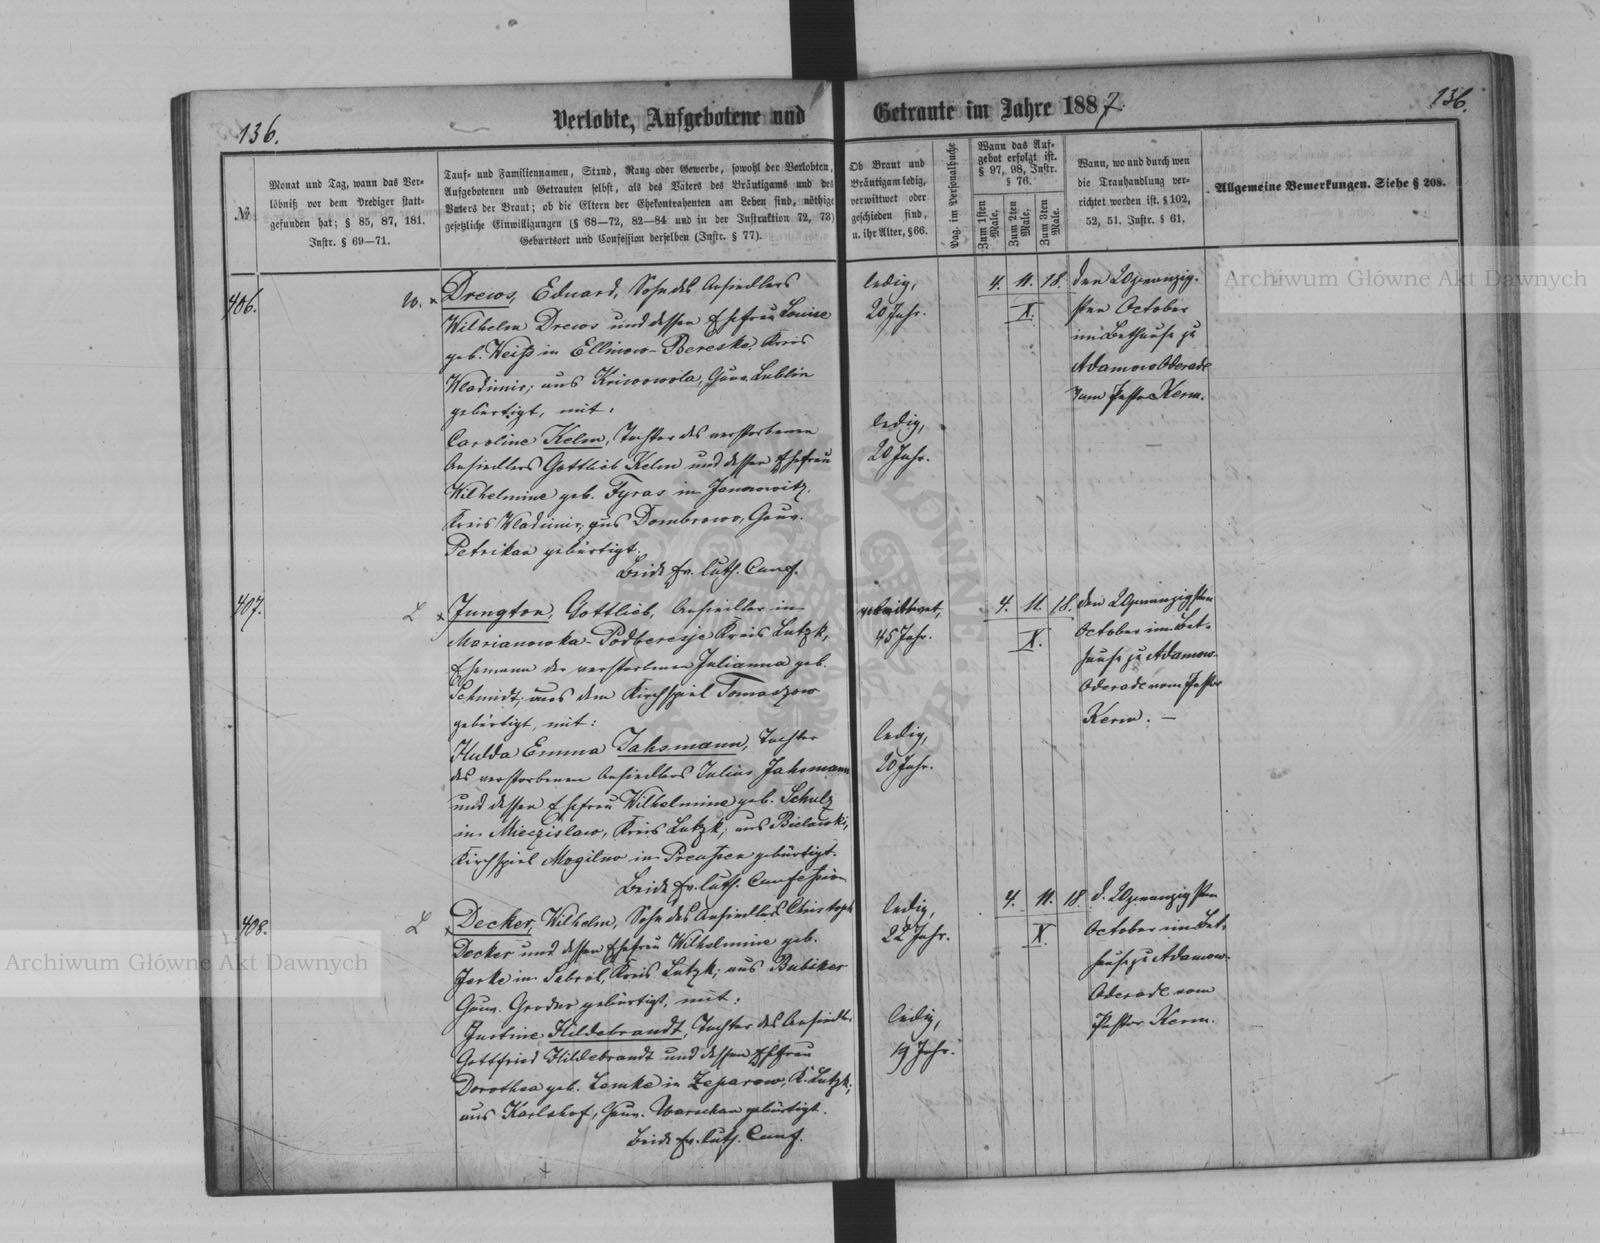 136.
Verlobte, Aufgebotene und
Getraute im Jahre 1887.
136.
№
Monat und Tag, wann das Ver=
löbniß vor dem Prediger statt=
gefunden hat; § 85, 87, 181.
Instr. § 69—71.
Tauf= und Familiennamen, Stand, Rang oder Gewerbe, sowohl der Verlobten,
Aufgebotenen und Getrauten selbst, als des Vaters des Bräutigams und des
Vaters der Braut; ob die Eltern der Ehekontrahenten am Leben sind, nöthige
gesetzliche Einwilligungen (§ 68—72, 82—84 und in der Instruktion 72, 73)
Geburtsort und Confession derselben (Instr. § 77).
Ob Braut und
Bräutigam ledig,
verwittwet oder
geschieden sind,
u. ihr Alter, § 66.
Pag. im Personalbuche
Wann das Auf=
gebot erfolgt ist.
§ 97, 98, Instr.
§ 76.
Zum 1sten
Male.
Zum 2ten
Male.
Zum 3ten
Male.
Wann, wo und durch wen
die Trauhandlung ver=
richtet worden ist. § 102,
52, 51. Instr. § 61.
Allgemeine Bemerkungen. Siehe § 208.
406.
W.
Drews, Eduard, Sohn des Ansiedlers
Wilhelm Drews und dessen Ehefrau Louise
geb. Weiß in Ellinow-Bereske, Kreis
Wladimir; aus Kriwowola, Gouv. Lublin
gebürtigt, mit:
Caroline Kelm, Tochter des verstorbenen
Ansiedlers Gottlieb Kelm und dessen Ehefrau
Wilhelmine geb. Tyras in Janowitz,
Kreis Wladimir; aus Dombrowo, Gouv.
Petrikau gebürtigt.
Beide ev. luth. Conf.
ledig,
20 Jahr.
ledig,
20 Jahr.
4. 11. 18.
X.
den 20zwanzig-
sten October
im Bethause zu
Adamow Oderade
vom Pastor Kerm.
407.
L
Jungton, Gottlieb, Ansiedler in
Marianowka-Podberesje Kreis Lutzk,
Ehemann der verstorbenen Julianna geb.
Schmidt; aus dem Kirchspiel Tomaszow
gebürtigt, mit:
Hulda Emma Jahsmann, Tochter
des verstorbenen Ansiedlers Julius Jahsmann
und dessen Ehefrau Wilhelmine geb. Schulz
in Mieczislaw, Kreis Lutzk; aus Bielawski,
Kirchspiel Mogilno in Preußen gebürtigt.
Beide ev. luth. Confession
verwittwet,
45 Jahr.
ledig,
20 Jahr.
4. 11. 18.
X.
den 20zwanzigsten
October im Bet-
hause zu Adamow-
Oderade vom Pastor
Kerm. —
408.
L
Decker, Wilhelm, Sohn des Ansiedlers Christoph
Decker und dessen Ehefrau Wilhelmine geb.
Jerke in Sabrol, Kreis Lutzk; aus Bubiker
Gouv. Grodno gebürtigt, mit:
Justine Hildebrandt, Tochter des Ansiedl.
Gottfried Hildebrandt und dessen Ehefrau
Dorothea geb. Lemke in Zeparow, K. Lutzk;
aus Karlshof, Gouv. Warschau gebürtigt.
Beide ev. luth. Conf.
ledig,
22 Jahr.
ledig,
19 Jahr.
4. 11. 18
X.
d. 20zwanzigsten
October im Bet-
hause zu Adamow-
Oderade vom
Pastor Kerm.
Archiwum Główne Akt Dawnych
Archiwum Główne Akt Dawnych